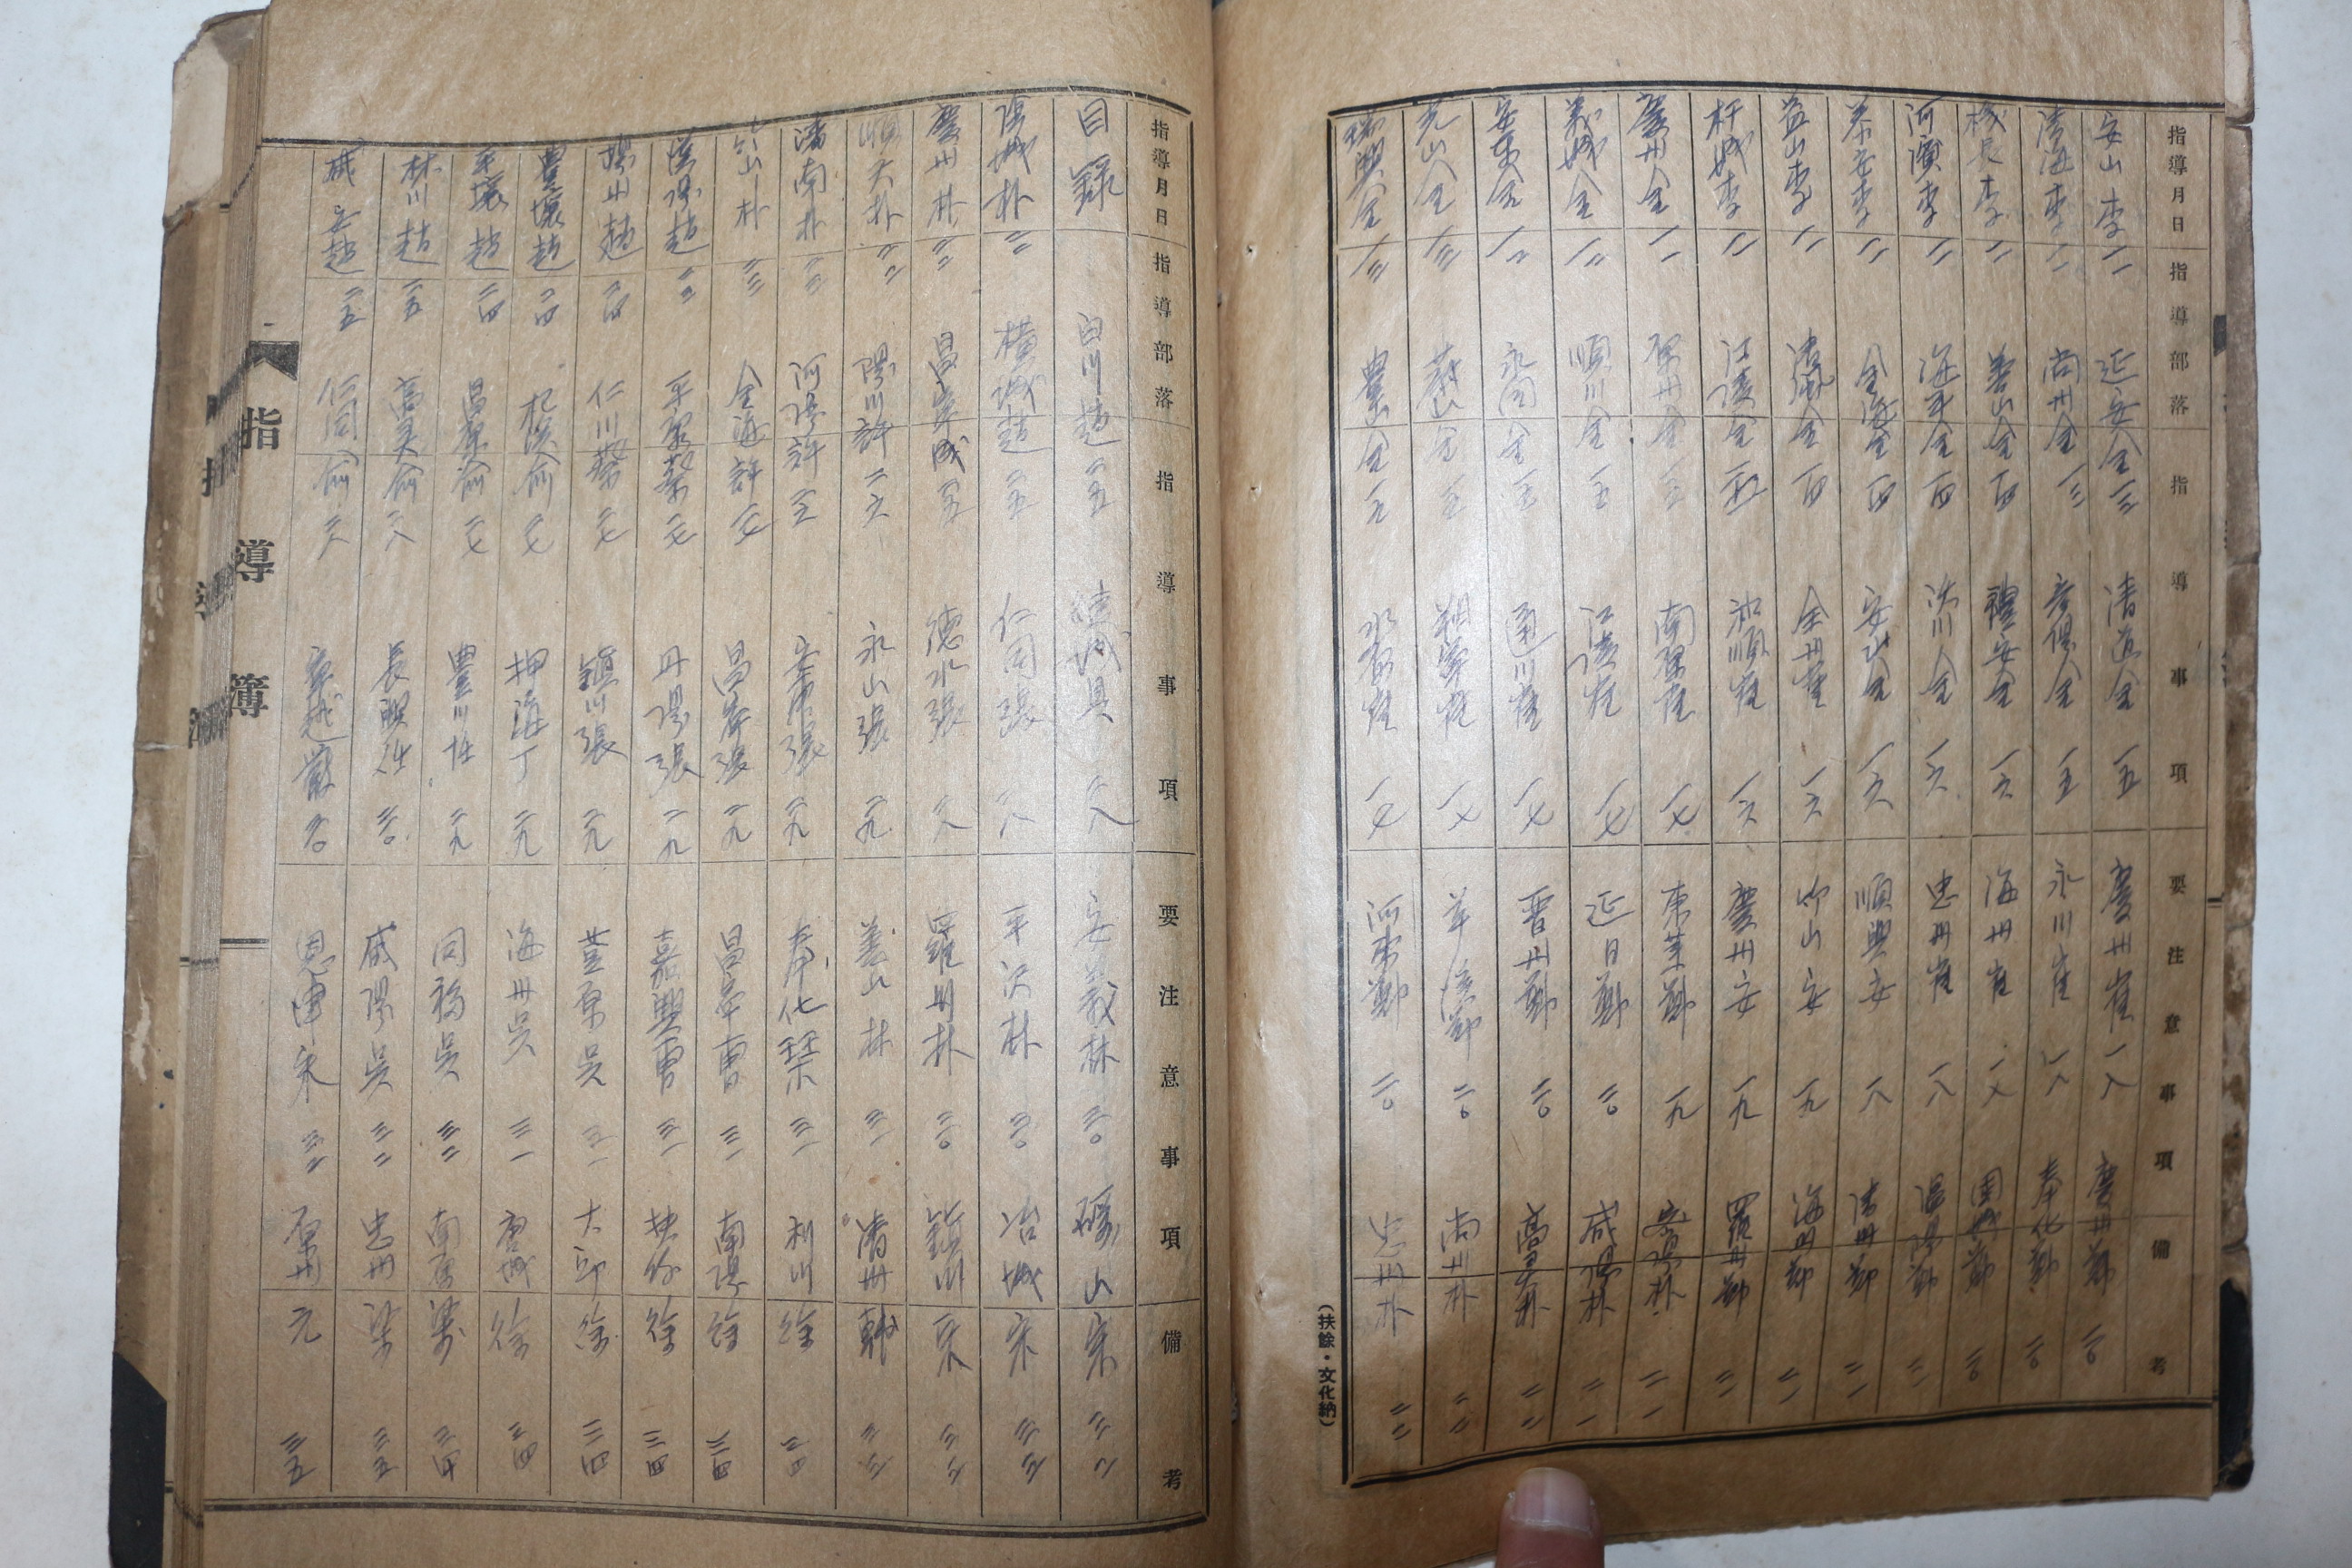 指導月日 指導部落 指導事項 要注意事項 備考
安山李 一一 延安金 一三 清道金 一五 慶州崔 一八 慶州鄭 二〇
清海李 一一 尚州金 一三 彦陽金 一五 永川崔 一八 奉化鄭 二〇
機長李 一一 善山金 一四 禮安金 一六 海州崔 一八 鄭 二〇
河濱李 一一 海平金 一四 金 一六 忠州崔 一八 溫陽鄭 二一
泰安李 一一 金海金 一四 安山金 一六 順興安 一八 清州鄭 二一
益山李 一一 清風金 一四 全州崔 一六 竹山安 一九 海州鄭 二一
杆城李 一一 江陵金 一四 和順崔 一六 慶州安 一九 羅州鄭 二一
慶州金 一一 原州金 一五 南陽崔 一七 東萊鄭 一九 密陽朴 二一
義城金 一二 順川金 一五 江陵崔 一七 延日鄭 二〇 咸陽朴 二一
安東金 一二 永同金 一五 通川崔 一七 晋州鄭 二〇 高灵朴 二二
光山金 一三 蔚山金 一五 朔寧崔 一七 草溪鄭 二〇 尚州朴 二二
瑞興金 一三 豊山金 一五 水原崔 一七 河東鄭 二〇 忠州朴 二二
(扶餘・文化納)
指導月日 指導部落 指導事項 要注意事項 備考
目錄 白川趙 二五 綾城具 二八 安義林 三〇 礪山宋 三二
陰城朴 二二 橫城趙 二五 仁同張 二八 平沢林 三〇 冶城宋 三三
慶州朴 二三 昌寧成 二五 德水張 二八 羅州林 三〇 鎮川宋 三三
順天朴 二二 陽川許 二六 永山張 二九 善山林 三一 清州韓 三三
潘南朴 二三 河陽許 安東張 二九 奉化琴 三一 利川徐 三四
竹山朴 二三 金海許 二七 昌寧張 二九 昌寧曺 三一 南陽徐 三四
漢陽趙 二三 平康蔡 二七 丹陽張 二九 嘉興曺 三一 扶余徐 三四
楊州趙 二四 仁川蔡 二七 鎮川張 二九 荳原吳 三一 大邱徐 三四
豊壤趙 二四 杞溪俞 二七 押海丁 二九 海州吳 三一 唐城徐 三四
平壤趙 二四 昌原俞 二七 豊川任 二九 同福吳 三二 南原梁 三四
林川趙 二五 高灵俞 二八 長興任 三〇 咸陽吳 三二 忠州梁 三五
咸安趙 二五 仁同俞 二八 寧越嚴 三〇 恩津宋 三二 原州元 三五
指導簿